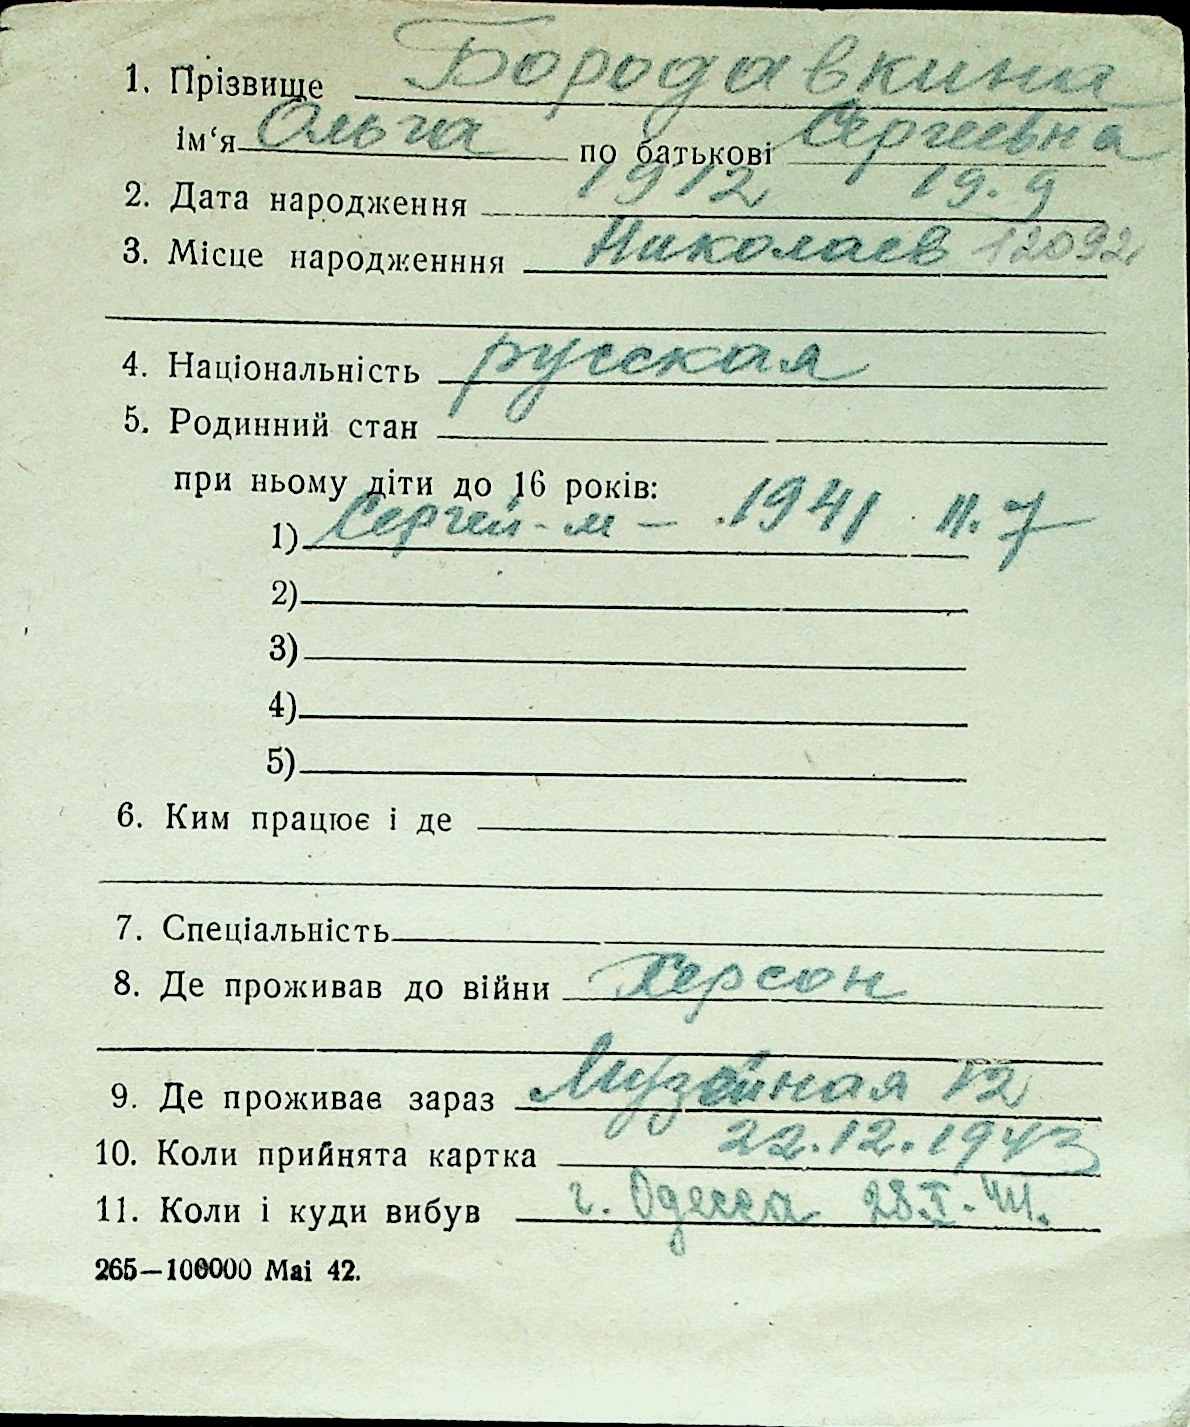 1. Прізвище Бородавкина
ім‘я Ольга по батькові Сергеевна
2. Дата народження 1912 19.9
3. Місце народженння Николаев 12092
4. Національність русская
5. Родинний стан
при ньому діти до 16 років:
1) Сергей - м - 1941 II. 7
2)
3)
4)
5)
6. Ким працює і де
7. Спеціальність
8. Де проживав до війни Херсон
9. Де проживає зараз Музейная 12
10. Коли прийнята картка 22.12.1943
11. Коли і куди вибув г. Одесса 28
265—100000 Маі 42.